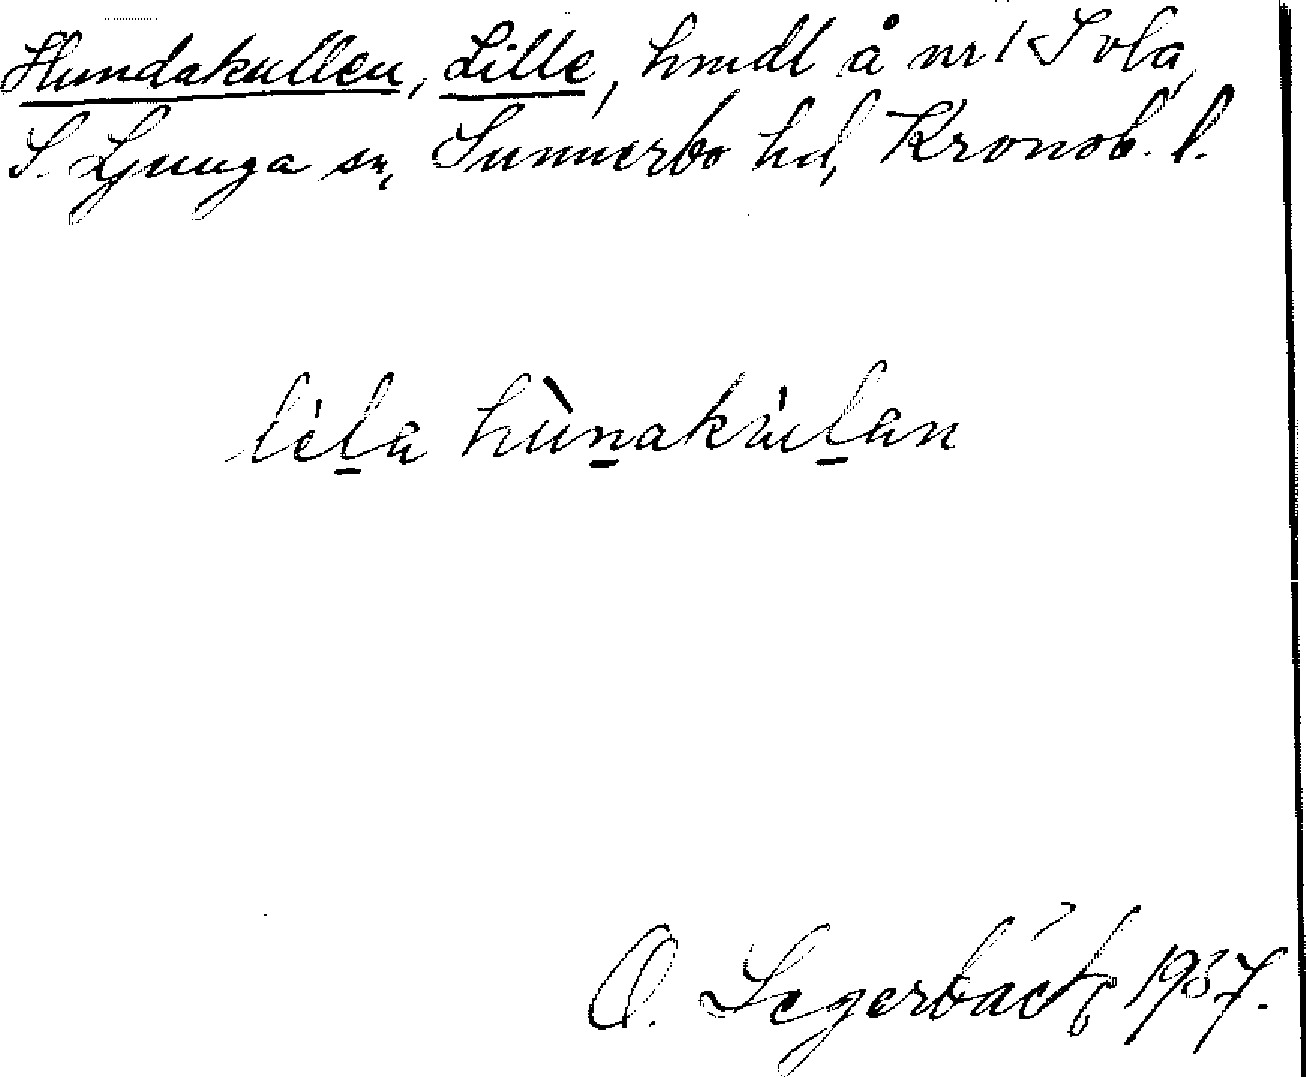 Hundakullen, Lille, hmdl å nr 1 Svla,
S. Ljunga sn, Sunnerbo hd, Kronob. l.
lela hùnakúlan
O. Segerbäck, 1937.